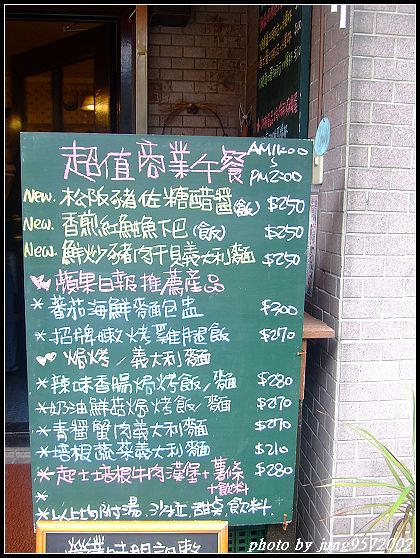 超值商業午餐 AM11:00
~
PM2:00
New. 松阪豬佐糖醋醬(飯) $250
New. 香煎紅魽魚下巴(飯) $250
New. 鮮炒豬肉干貝義大利麵 $250
蘋果日報推薦產品
* 蕃茄海鮮麵包盅 $300
* 招牌嫩烤雞腿飯 $270
焗烤/義大利麵
* 辣味香腸焗烤飯/麵 $280
* 奶油鮮菇焗烤飯/麵 $270
* 青醬蟹肉義大利麵 $270
* 培根蔬菜義大利麵 $210
* 起士培根牛肉漢堡+薯條 $280
+飲料
*
* 以上均附湯.沙拉.甜點.飲料.
photo by jmg9572002